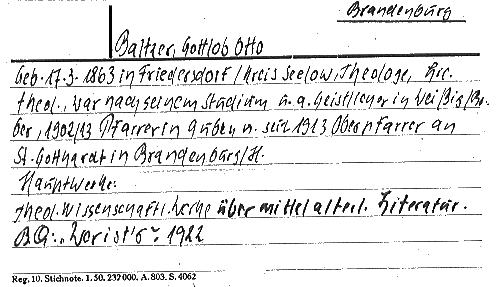 Brandenburg
Baltzer, Gottlob Otto
Geb. 17.3. 1863 in Friedersdorf/Kreis Seelow, Theologe, Lic.
theol., war nach seinem Studium u.a. Geistlicher in
ber, 1902/13 Pfarrer in Guben u. seit 1913 Oberpfarrer an
St. Gotthardt in Brandenburg/H.
Hauptwerke:
Theol. wissenschaftl. Werke über mittelalterl. Literatur.
BQ: "Wer ist's" 1922
Reg. 10. Stichnote. 1. 50. 232000. A. 803. S. 4062